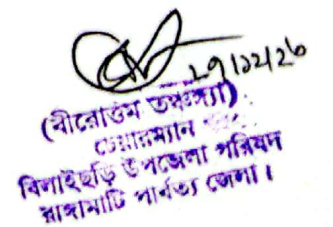 ২৭/১২/২৩
(বীরোত্তম তঞ্চঙ্গ্যা)
চেয়ারম্যান
বিলাইছড়ি উপজেলা পরিষদ
রাঙ্গামাটি পার্বত্য জেলা।